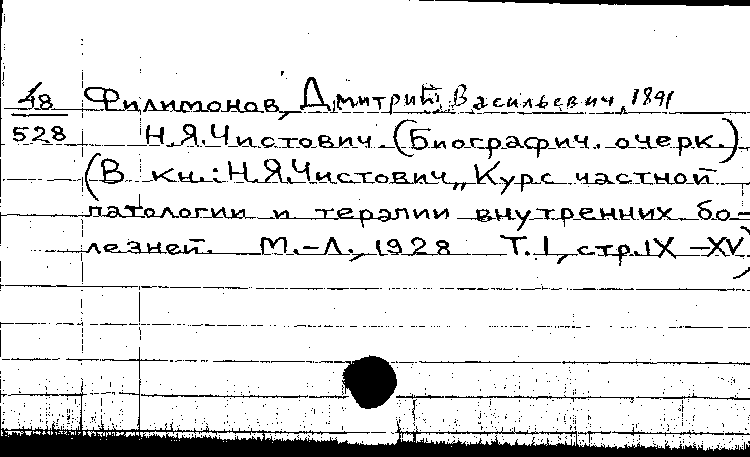 48 Филимонов, Дмитрий Васильевич, 1891
528 Н.Я.Чистович. (Биографич. очерк.)
(В кн.: Н.Я.Чистович, „Курс частной
патологии и терапии внутренних бо-
лезней. М.-Л., 1928 Т. I, стр. IX-XV)